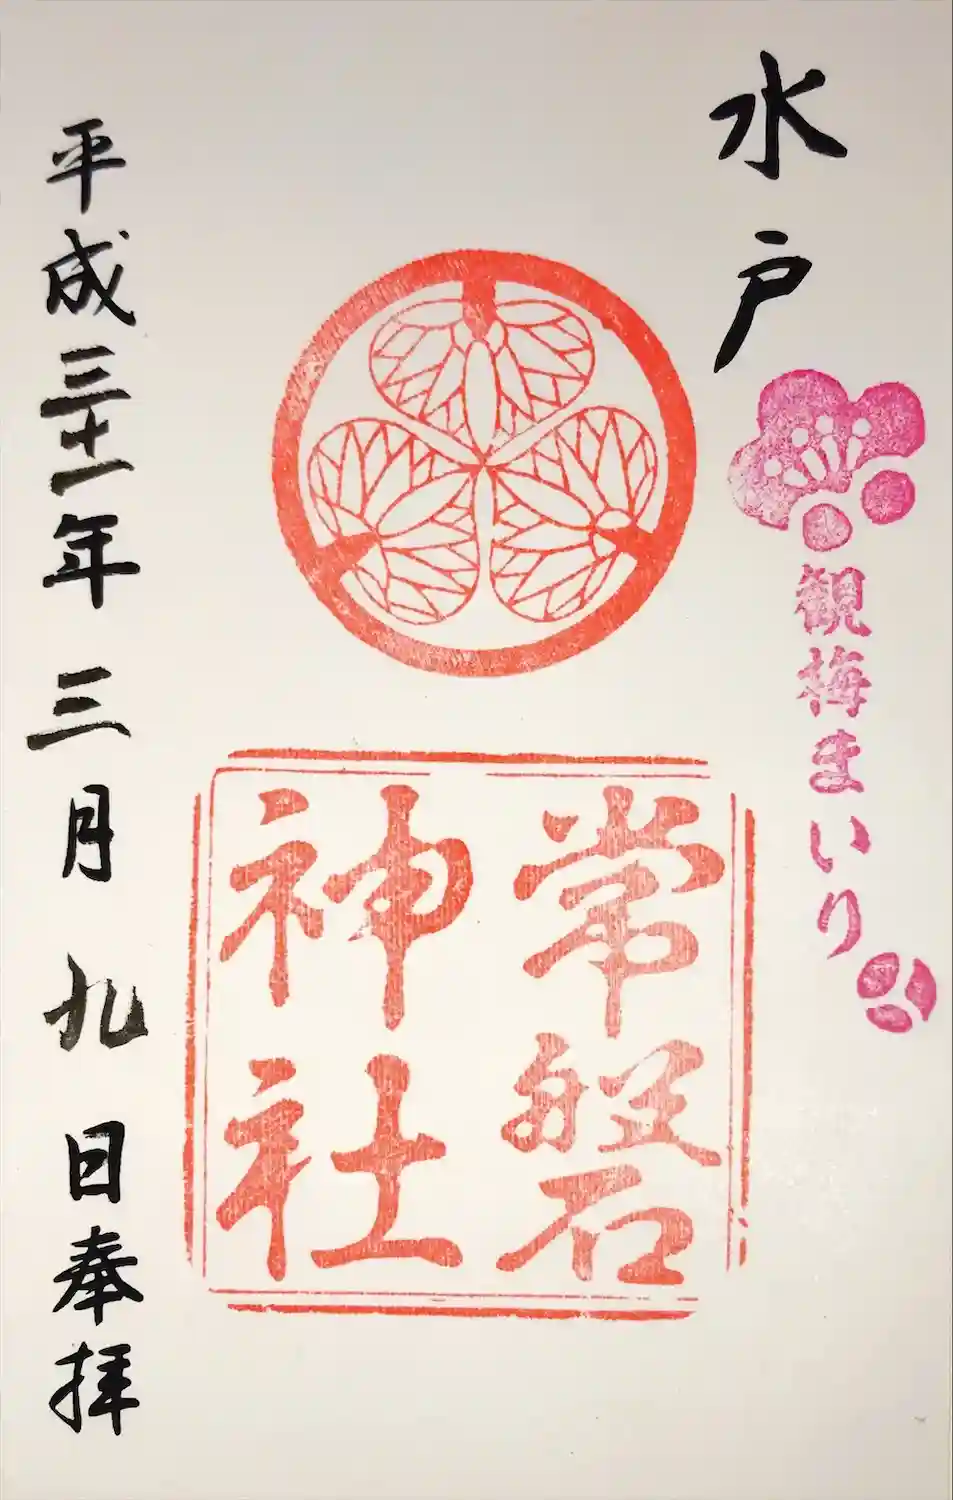 水戸
観梅まいり
常磐
神社
平成三十一年三月九日奉拝